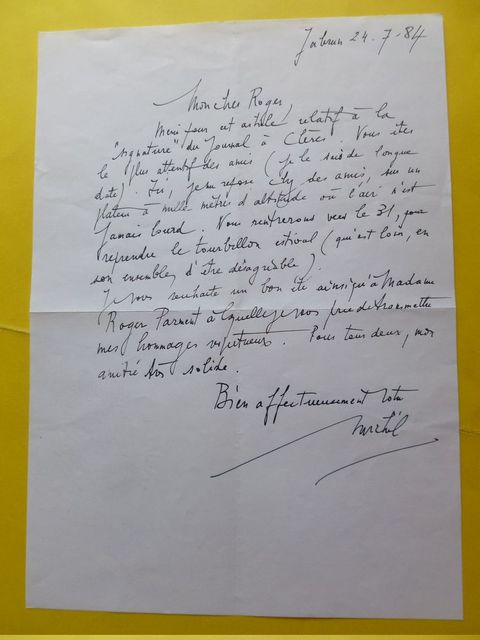 Jabrun 24-7-84
Mon cher Roger,
Merci pour cet article relatif à la
"signature" du Journal à Clères. Vous êtes
le plus attentif des amis (je le sais de longue
date). Ici, je me repose chez des amis, sur un
plateau à mille mètres d'altitude où l'air n'est
jamais lourd. Nous rentrerons vers le 31, pour
reprendre le tourbillon estival (qui est loin, en
son ensemble, d'être désagréable).
Je vous souhaite un bon été ainsi qu'à Madame
Roger Parment à laquelle je vous prie de transmettre
mes hommages respectueux. Pour tous deux, mon
amitié très solide.
Bien affectueusement votre
Michel